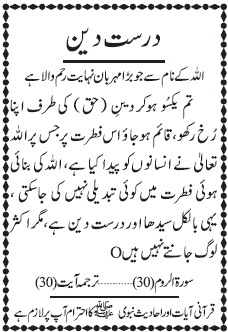 درست دین
اللہ کے نام سے جو بڑا مہربان نہایت رحم والا ہے
تم یکسُو ہو کر دین (حق) کی طرف اپنا
رُخ رکھو، قائم ہو جاؤ اس فطرت پر جس پر اللہ
تعالیٰ نے انسانوں کو پیدا کیا ہے، اللہ کی بنائی
ہوئی فطرت میں کوئی تبدیلی نہیں کی جا سکتی،
یہی بالکل سیدھا اور درست دین ہے، مگر اکثر
لوگ جانتے نہیں ہیں O
سورۃ الروم (30)............ترجمہ آیت (30)
قرآنی آیات اور احادیث نبوی ﷺ کا احترام آپ پر لازم ہے